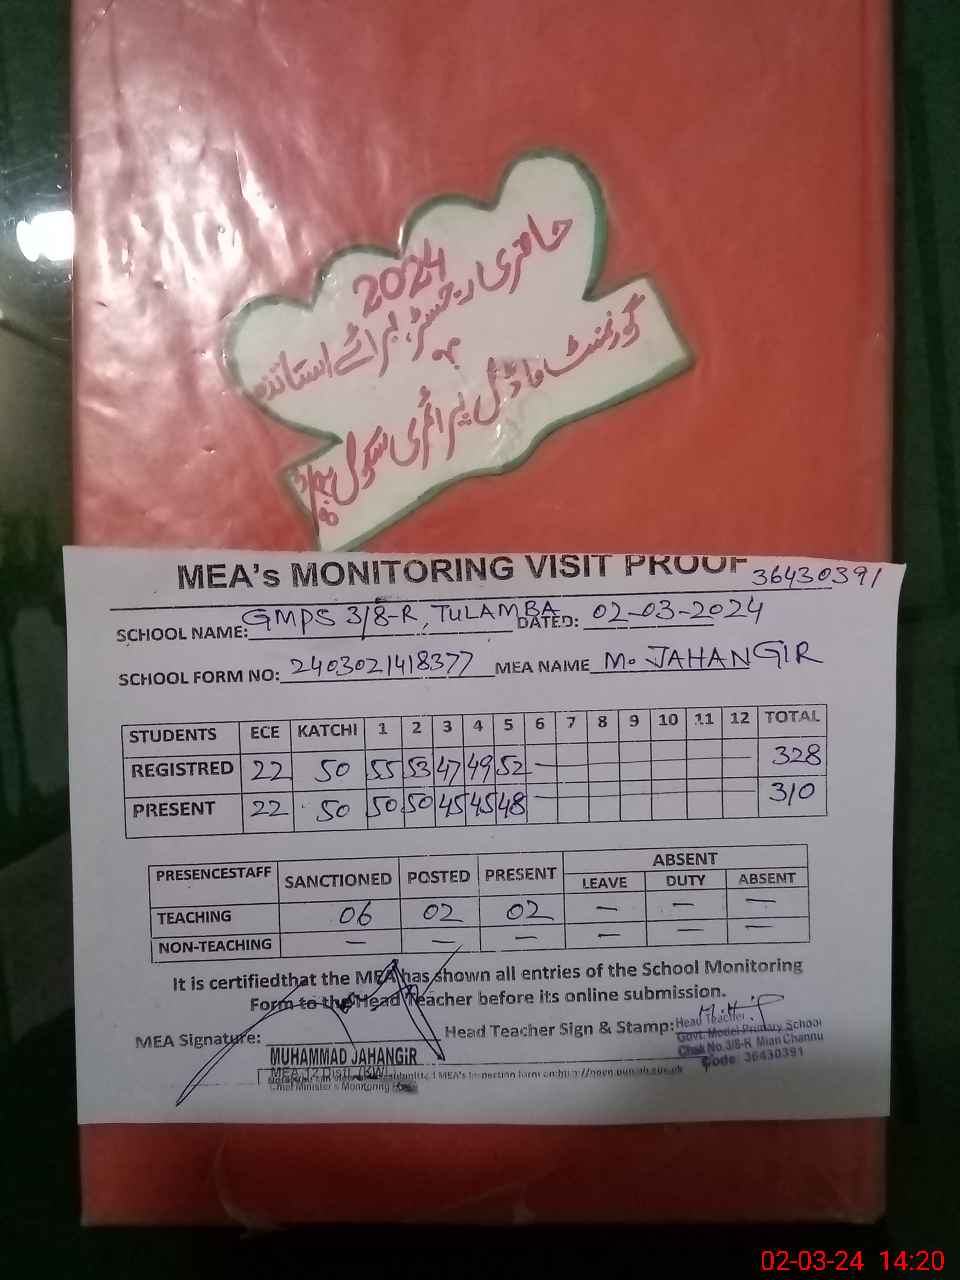 2024
حاضری رجسٹر برائے اساتذہ
گورنمنٹ ماڈل پرائمری سکول
MEA's MONITORING VISIT PROOF
36430391
SCHOOL NAME: GMPS 3/8-R, TULAMBA DATED: 02-03-2024
SCHOOL FORM NO: 2403021418377 MEA NAME M. JAHANGIR
STUDENTS ECE KATCHI 1 2 3 4 5 6 7 8 9 10 11 12 TOTAL
REGISTRED 22 50 55 53 47 49 52 — 328
PRESENT 22 50 50 50 45 45 48 — 310
PRESENCESTAFF SANCTIONED POSTED PRESENT ABSENT
LEAVE DUTY ABSENT
TEACHING 06 02 02 — — —
NON-TEACHING — — — — — —
It is certifiedthat the MEA has shown all entries of the School Monitoring
Form to the Head Teacher before its online submission.
MEA Signature: Head Teacher Sign & Stamp:
Head Teacher
Govt. Model Primary School
Chak No.3/8-R Mian Channu
Code: 36430391
MUHAMMAD JAHANGIR
Chief Minister's Monitoring
02-03-24 14:20